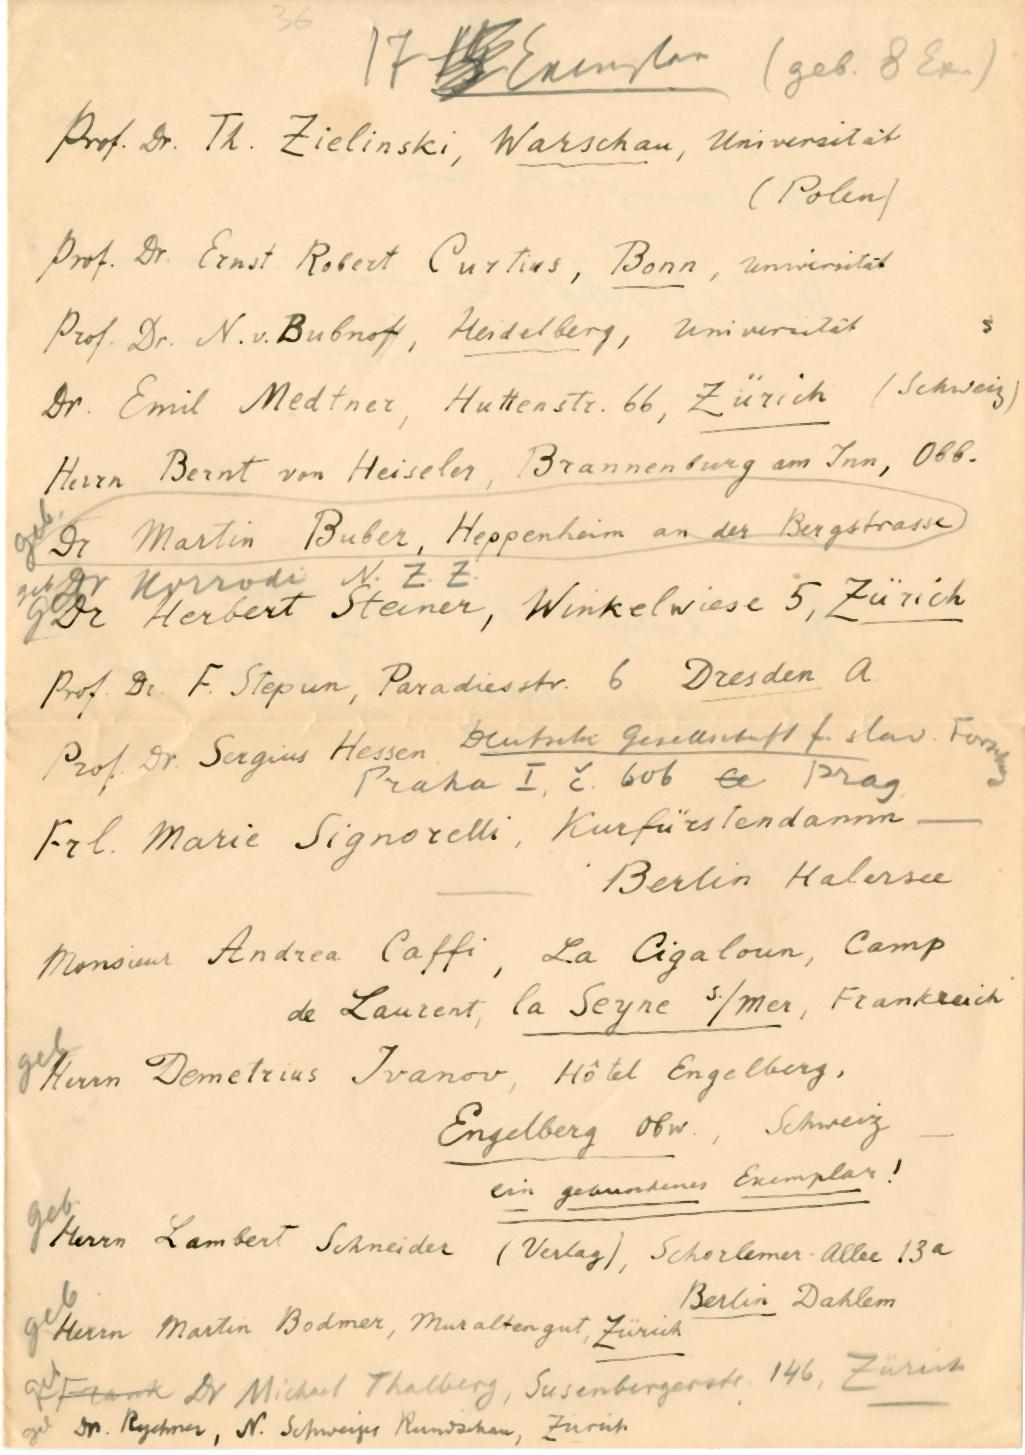 36
17 Exemplar (geb. 8 Ex.)
Prof. Dr. Th. Zielinski, Warschau, Universität
(Polen)
Prof. Dr. Ernst Robert Curtius, Bonn, Universität
Prof. Dr. N. v. Bubnoff, Heidelberg, Universität s
Dr. Emil Medtner, Huttenstr. 66, Zürich (Schweiz)
Herrn Bernt von Heiseler, Brannenburg am Inn, Obb.
geb. Dr Martin Buber, Heppenheim an der Bergstrasse
geb Dr Korrodi N. Z. Z.
g Dr Herbert Steiner, Winkelwiese 5, Zürich
Prof. Dr. F. Stepun, Paradiesstr. 6 Dresden A
Prof. Dr. Sergius Hessen Deutsche Gesellschaft f. slav. Forschg
Praha I, č. 606 Prag
Frl. Marie Signorelli, Kurfürstendamm —
— Berlin Halensee
Monsieur Andrea Caffi, La Cigaloun, Camp
de Laurent, la Seyne s/mer, Frankreich
geb Herrn Demetrius Ivanov, Hôtel Engelberg,
Engelberg Obw., Schweiz —
ein gebundenes Exemplar!
geb Herrn Lambert Schneider (Verlag), Schorlemer-Allee 13a
Berlin Dahlem
geb Herrn Martin Bodmer, Muraltengut, Zürich
geb Frank Dr Michael Thalberg, Susenbergerstr. 146, Zürich
geb Dr. Rychner, N. Schweizer Rundschau, Zürich